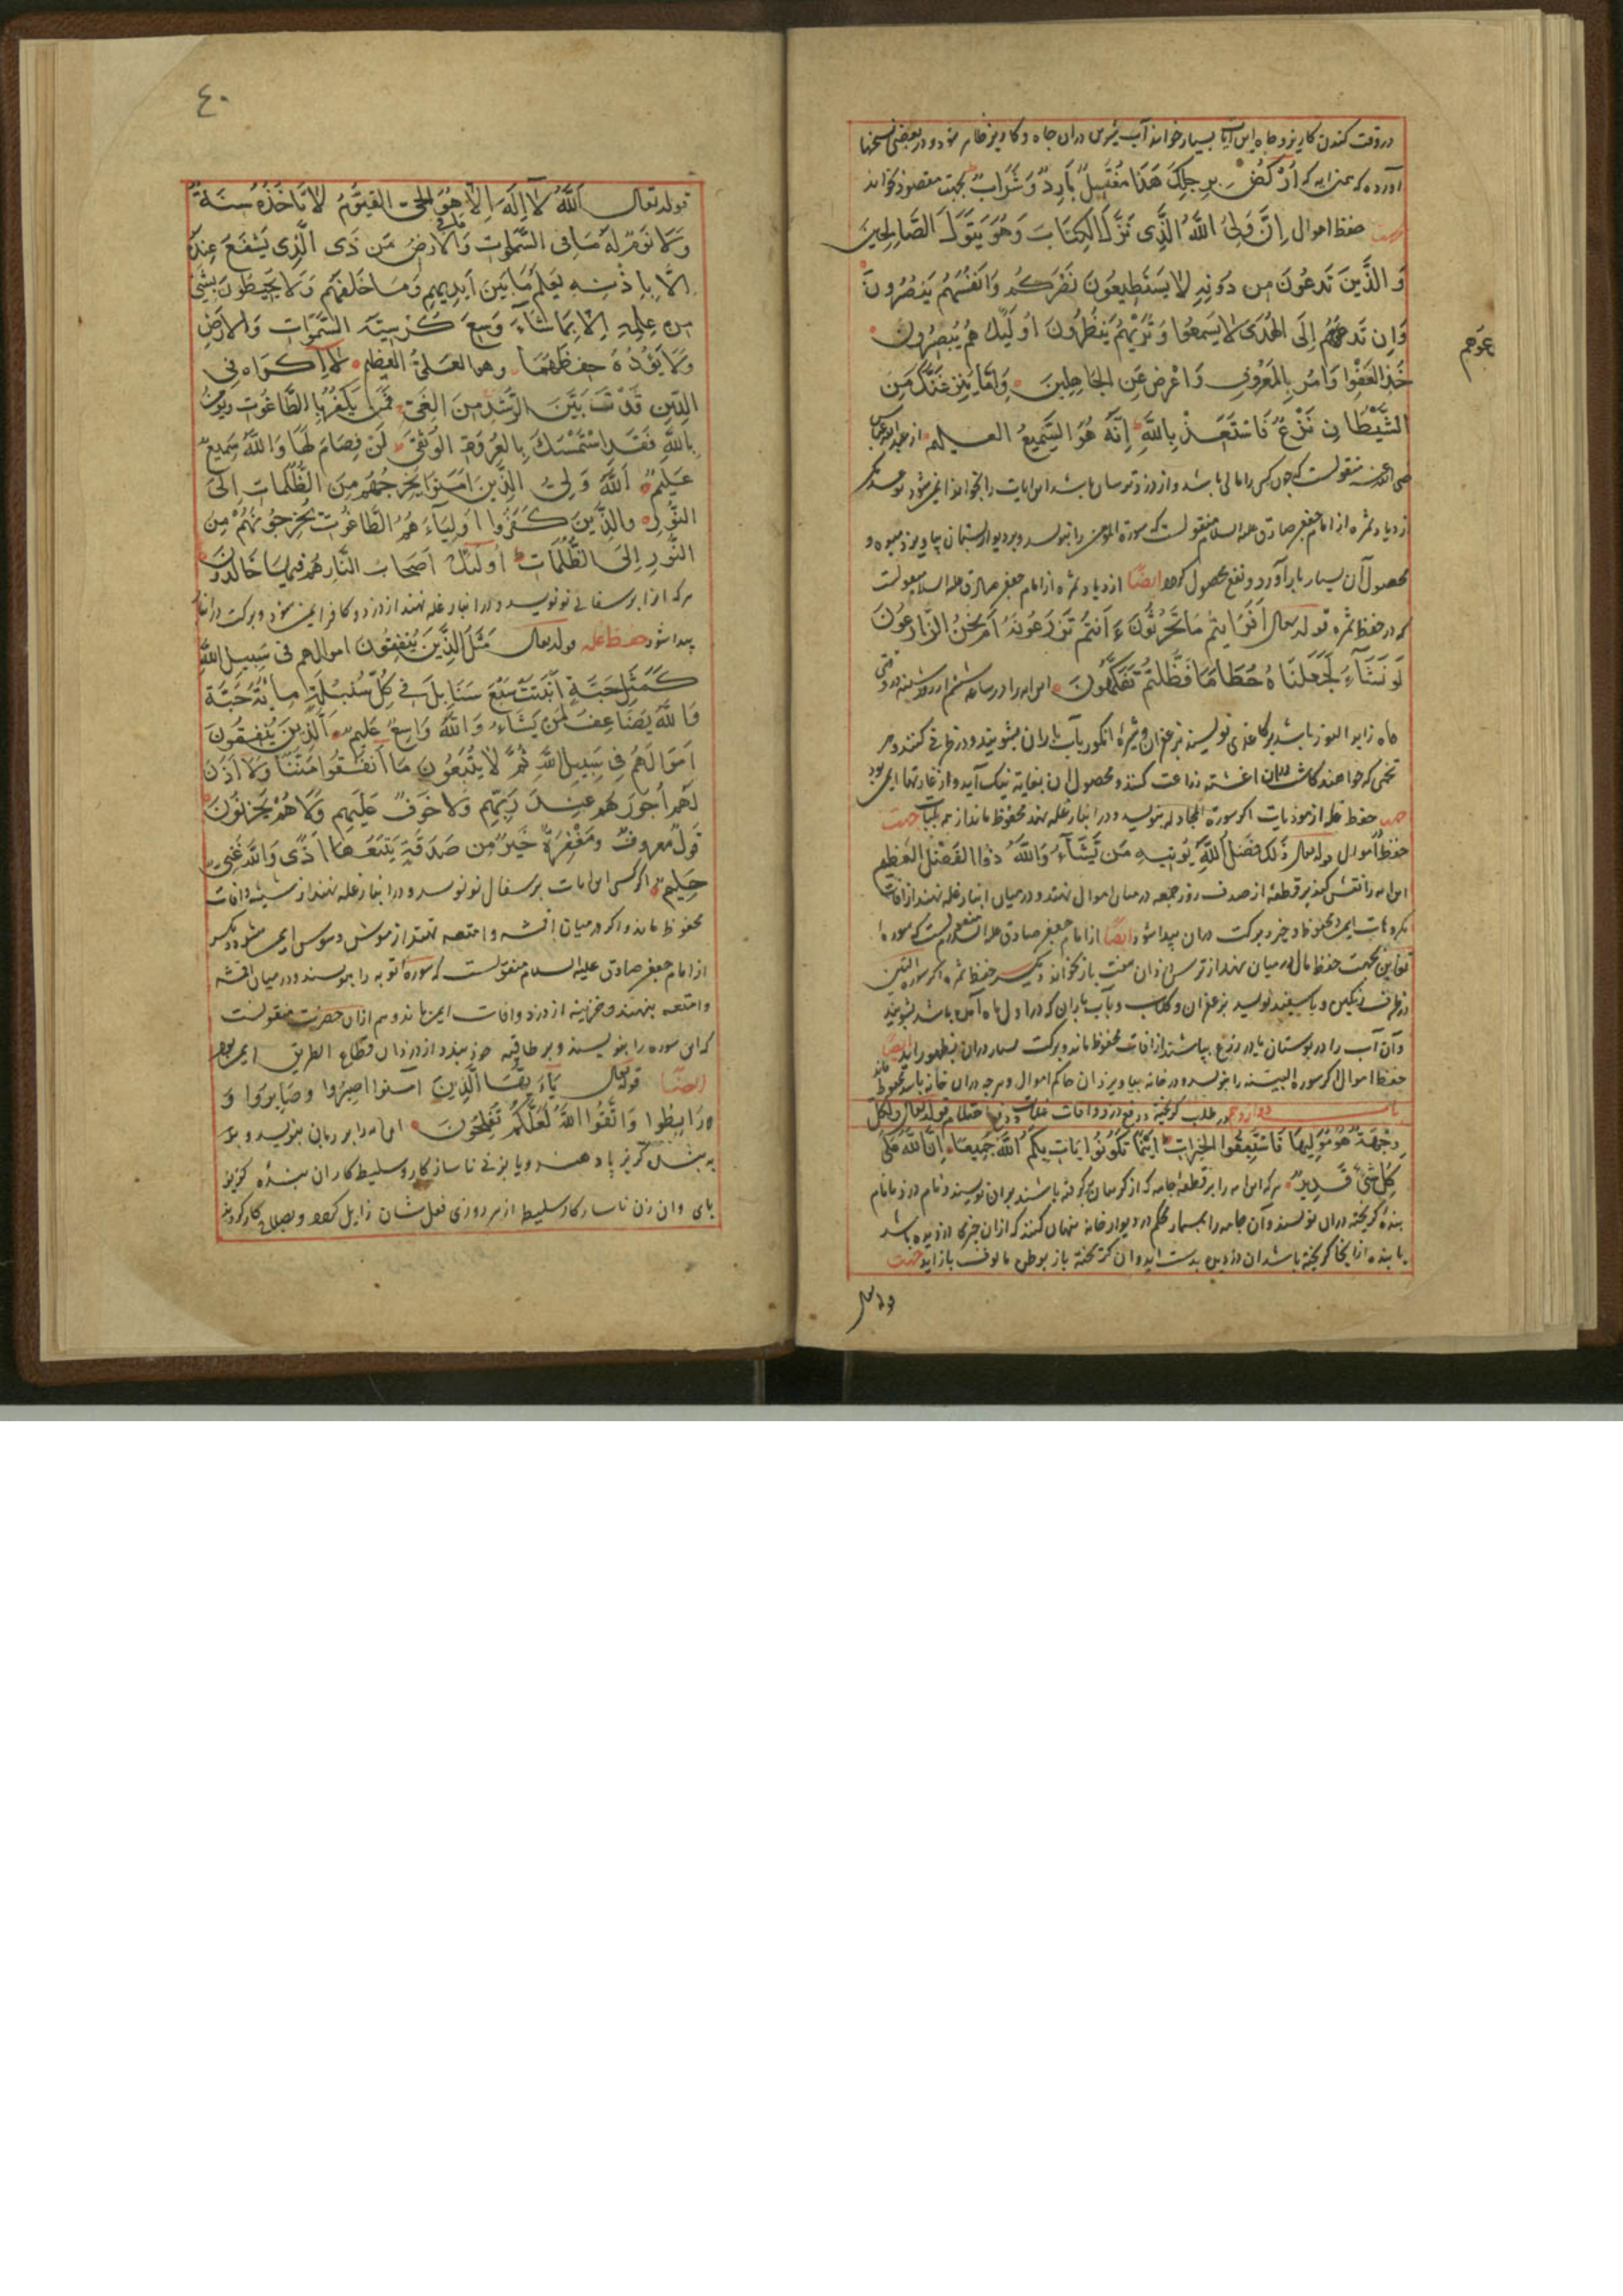 در وقت کندن کاریز و چاه این آیات بسیار خواند آب شیرین در ان چاه و کاریز ظاهر شود و در بعضی نسخها
آورده که بهتر آیه که ارْكُضْ بِرِجْلِكَ هَذَا مُغْتَسَلٌ بَارِدٌ وَشَرَابٌ بجهت مقصود بخواند
جهت حفظ اموال اِنَّ وَلِيَّ اللهُ الَّذِى نَزَّلَ الكِتَابَ وَهُوَ يَتَوَلَّى الصَّالِحِينَ
وَالَّذِينَ تَدعُونَ مِن دُونِهِ لا يَستَطِيعُونَ نَصْرَكُم وَاَنفُسَهُم يَنصُرُونَ
وَاِن تَدعُوهُم اِلَى الهُدَى لا يَسمَعُوا وَتَرَيهُم يَنظُرُونَ اُولَئِكَ هم يُبصِرُون
تدعوهم
خُذِ العَفْوَا وَامُر بِالمَعرُوفِ وَاَعْرِض عَنِ الجَاهِلِينَ وَاِمَّا يَنزَغَنَّكَ مِنَ
الشَّيْطَانِ نَزْغٌ فَاستَعِذْ بِاللهِ اِنَّهُ هُوَ السَّمِيعُ العـليم از عبدالله عباس
رضی الله عنه منقولست که چون کسی را مالی باشد و از دزد ترسان باشد این آیات را بخواند ایمن شود نوع دیگر
ازدیاد ثمره از امام جعفر صادق علیه السلام منقولست که سورة المومن را بنویسد و بر دیوار بستان بیاویزد میوه و
محصول آن بسیار بار آورد و نفع محصول کردد ایضًا ازدیاد ثمره از امام جعفر صادق علیه السلام منقولست
که در حفظ ثمره قوله تعال اَفَرَايتُم مَا تَحرُثُونَ ءَ اَنتُم تَزرَعُونَهُ اَم نَحنُ الزَّارِعُونَ
لَو نَشَآءُ لَجَعَلنَاهُ حُطَامًا فَظَلتُم تَفَكَّهُونَ این آیه را در ساعه ششم از روز شنبه در وقتی
ماه زاید النور باشد بر کاغذی نویسند بزعفران و شیرۀ انکور بآب باران بشویند و در ظرفی کنند و هر
تخمی که خواهند کاشت بدان اغشته زراعت کنند و محصول ان بغایة نیک آید و از غارتها ایمن بود
جهت حفظ غله از موذیات اکر سورة المجادله بنویسد و در انبار غله نهد محفوظ ماند از همه بلیات جهت
حفظ اموال قوله تعال ذَلِكَ فَضلُ اللهِ يُوتِيهِ مَن يَّشَآءُ وَاللهُ ذوا الفَضْلِ العَظِيمِ
این آیه را نقش کند بر قطعۀ از صدف روز جمعه در میان اموال نهند و در میان انبار غله نهند از افات
مکروهات ایمن و محفوظ ماند و خیر و برکت در ان پیدا شود ایضًا از امام جعفر صادق علیه السلام منقولست که سوره
تغابن بجهت حفظ مال در میان نهند از ترس دزدان هفت بار بخواند دیکر حفظ ثمره اکر سوره التین
در ظرف رنکین و یا سفید نویسد بزعفران و کلاب و بآب باران که در اول ماه آمده باشد بشویند
وآن آب را در بوستان یا در زرع بپاشند از افات محفوظ ماند و برکت بسیار در ان بظهور اید ایضًا
حفظ اموال اکر سورة البیّنه را بنویسد و در خانه بیاویزد ان حاکم اموال و هرچه در ان خانه باشد محفوظ ماند
باب دوازدهم در طلب کریخته و رفع دزد و افات غلات قوله تعال وَلِكُلٍّ
وِجْهَةٌ هُوَ مُوَلِّيهَا فَاستَبِقُوا الخَيرَات اَينَمَا تَكُونُوا يَاتِ بِكُمُ اللهُ جَمِيعًا اِنَّ اللهَ عَلَى
كلِّ شَىْءٍ قَدِيرٌ هر که این آیه را بر قطعۀ جامه که از کریبان کرفته باشند بران نویسند و نام دزد یا نام
بندۀ کریخته دران نویسند وآن جامه را بمسمار محکم در دیوار خانه پنهان کنند که ازان چیزی دزدیده باشد
یا بنده از انجا کریخته باشد ان دزدیده بدست اید و ان کریخته باز بوطن مالوف باز آید جهت
قوله تعال
٤٠
قوله تعال اَللهُ لَآ اِلَهَ اِلَّا هُوَ الحيّ القَيُّومُ لَا تَاخُذُهُ سِنَةٌ
وَلَا نَومٌ لَهُ مَا فِى السَّمٰواتِ وَمَا فى الاَرضِ مَن ذَى الَّذِى يَشفَعُ عِندَهُ
اِلَّا بِاِذْنِهِ يَعلَمُ مَا بَينَ اَيدِيهِم وَمَا خَلفَهُم وَلَا يُحِيطُونَ بِشَىْءٍ
مِن عِلمِهِ اِلَّا بِمَا شَآءَ وَسِعَ كُرسِيُّهُ السَّمَوَاتِ وَالاَرضَ
وَلَا يَؤُدُهُ حِفظُهُمَا وهو العَلىُّ العَظِيمِ لَآ اِكرَاهَ فِى
الدّينِ قَدْ تَبَيَّنَ الرُّشْدُ مِنَ الغَىِّ فَمَن يَكفُر بِالطَّاغُوتِ وَيُومِنُ
بِاللهِ فَقَدِ اسْتَمْسَكَ بِالعُروَةِ الوُثْقَى لَنْ فِصَامَ لَهَا وَاللهُ سَمِيعٌ
عَلِيمٌ اَللهُ وَلِىُّ الَّذِينَ اَمَنُوا يُخرِجُهُم مِنَ الظُّلُمَاتِ اِلَى
النُّورِ والَّذِينَ كَفَرُوا اَولِيَاءُهُمُ الطَّاغُوتُ يُخرِجُونَهُمْ مِنَ
النُّورِ اِلَى الظُّلُمَاتِ اُولَئِكَ اَصحَابُ النَّارِ هُم فِيهَا خَالِدُونَ
هر که انرا بر سفالی نو نویسد و در انبار غله نهند از دزد و کافر ایمن شود و برکت در انبار
پیدا شود حفظ غله قوله تعال مَثَلُ الَّذِينَ يُنفِقُونَ اموالهم فى سَبِيلِ اللهِ
كَمَثَلِ حَبَّةٍ اَنبَتَتْ سَبعَ سَنَابِلَ فِى كُلِّ سُنبُلَةٍ مِائةُ حَبَّةٍ
وَاللهُ يُضَاعِفُ لِمَن يَشَآءُ وَاللهُ وَاسِعٌ عَلِيمٌ اَلَّذِينَ يُنفِقُونَ
اَموَالَهُم فِى سَبِيلِ اللهِ ثُمَّ لَا يُتبِعُونَ مَا اَنفَقُوا مَنًّا وَلَا اَذًى
لَهم اُجورَهُم عِندَ رَبِّهِم وَلَا خَوفٌ عَلَيهِم وَلَا هُم يَحزَنُونَ
قَولٌ مَعروفٌ وَمَغْفِرَةٌ خَيرٌ مِن صَدَقَةٍ يَتبَعُهَا اَذًى وَاللهُ غَنِىٌّ
حَلِيمٌ اکر کسی این ایات بر سفال نو نویسد و در انبار غله نهند از شپشه و افات
محفوظ ماند و اکر در میان اقمشه و امتعه نهند از موش و سوس ایمن شود دیکر
از امام جعفر صادق علیه السلام منقولست که سورۀ توبه را بنویسند و در میان اقمشه
وامتعه بنهند و خزاینه از دزد و افات ایمن ماند و هم ازان حضرت منقولست
که این سوره را بنویسند و بر طاقیه خود نهد از دزدان قطاع الطریق ایمن بود
ایضًا قوله تعال يَآءَيُّهَا الَّذِينَ آمنوا اصبِرُوا وصَابِرُوا وَ
وَرَابِطُوا وَاتَّقُوا اللهَ لَعَلَّكُم تُفلِحُونَ این آیه را بر نان بنویسد و به
بندۀ کریز پا دهند و یا بزنی ناسازکار و سلیطه کار ان بندۀ کریز
پای وان زن ناسازکار سلیطه از سر دوزی فعل شان زایل کردد و بصلاح کار کردند